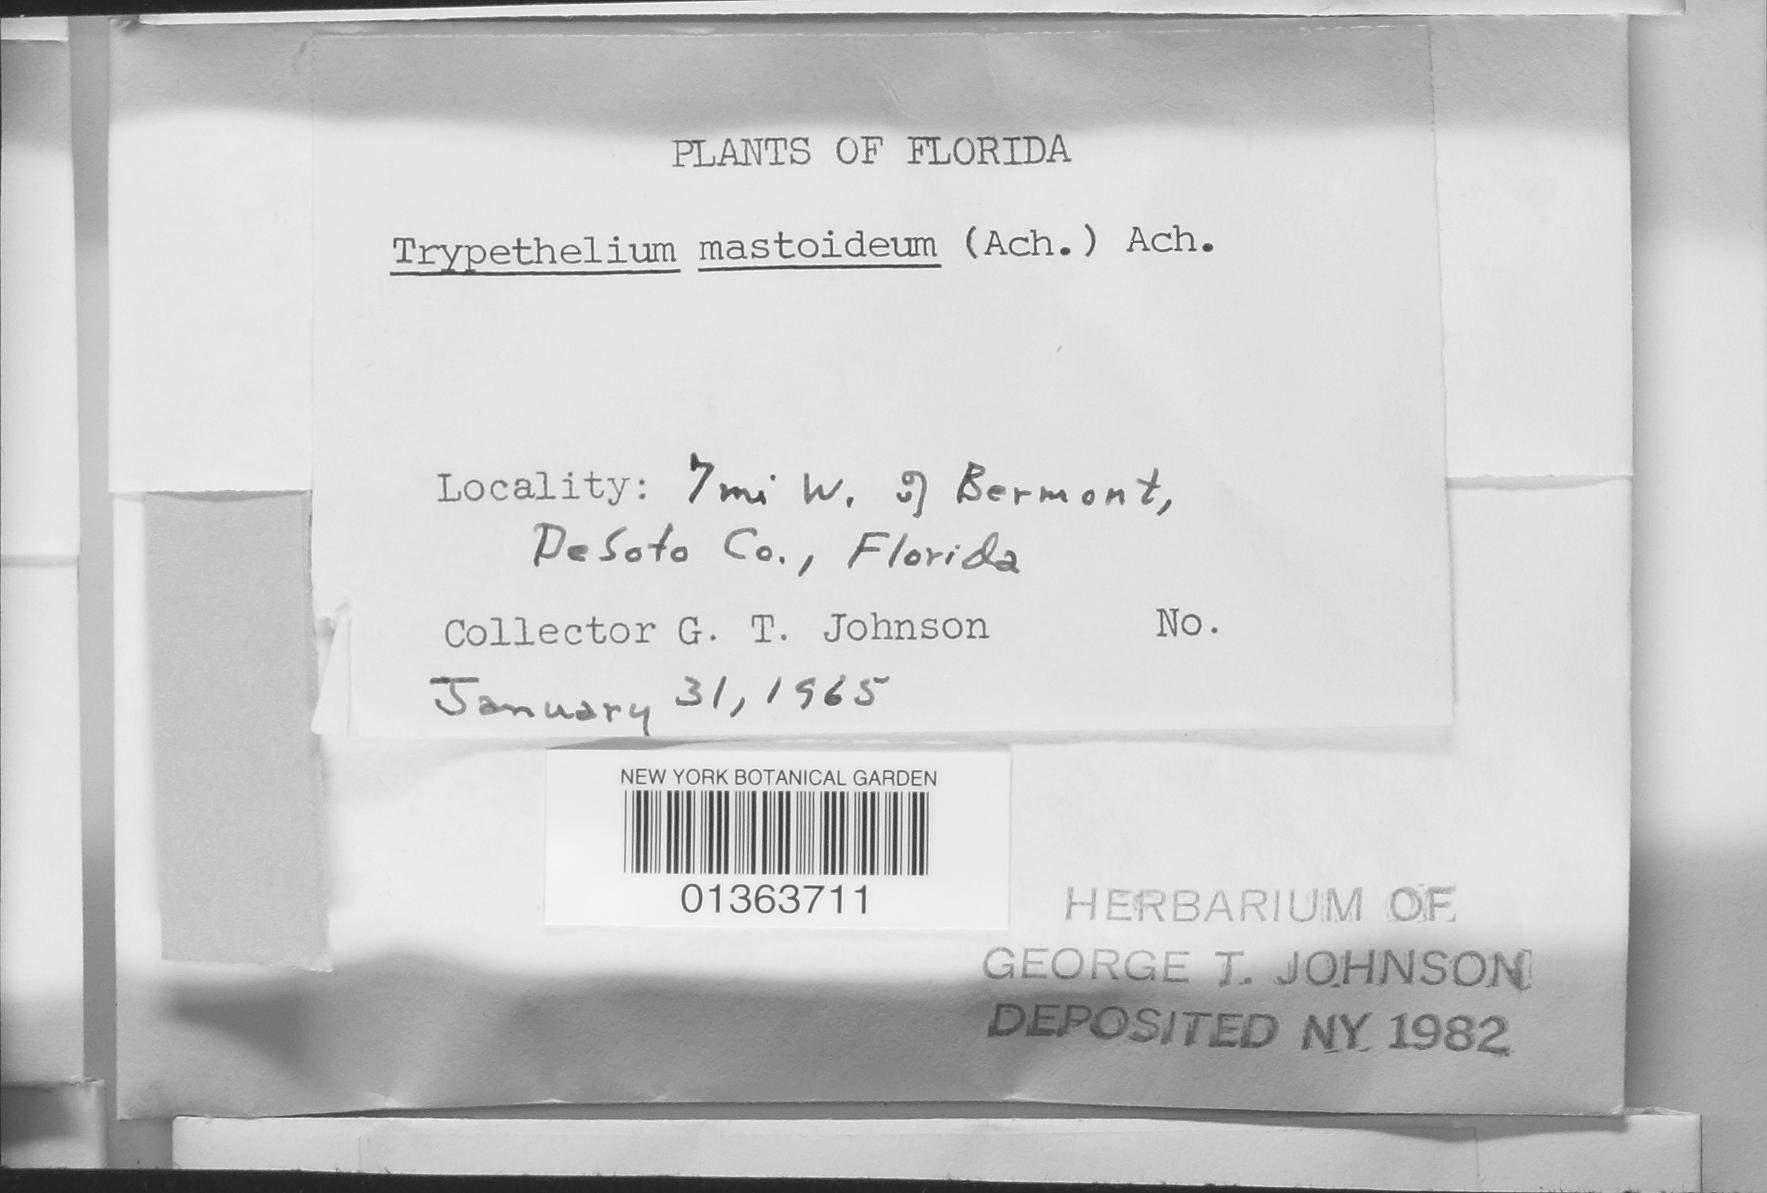 PLANTS OF FLORIDA
Trypethelium mastoideum (Ach.) Ach.
Locality: 7 mi W. of Bermont,
DeSoto Co., Florida
Collector G. T. Johnson No.
January 31, 1965
NEW YORK BOTANICAL GARDEN
01363711
HERBARIUM OF
GEORGE T. JOHNSON
DEPOSITED NY 1982